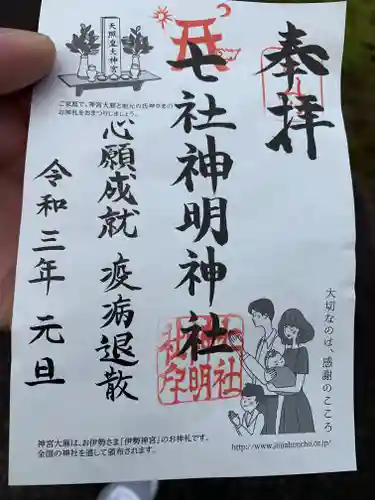 奉拝
七社神明神社
心願成就 疫病退散
令和三年 元旦
天照皇大神宮
ご家庭で、神宮大麻と地元の氏神さまの
お神札をおまつりしましょう。
大切なのは、感謝のこころ
http://www.jinjahoncho.or.jp
神宮大麻は、お伊勢さま「伊勢神宮」のお神札です。
全国の神社を通して頒布されます。